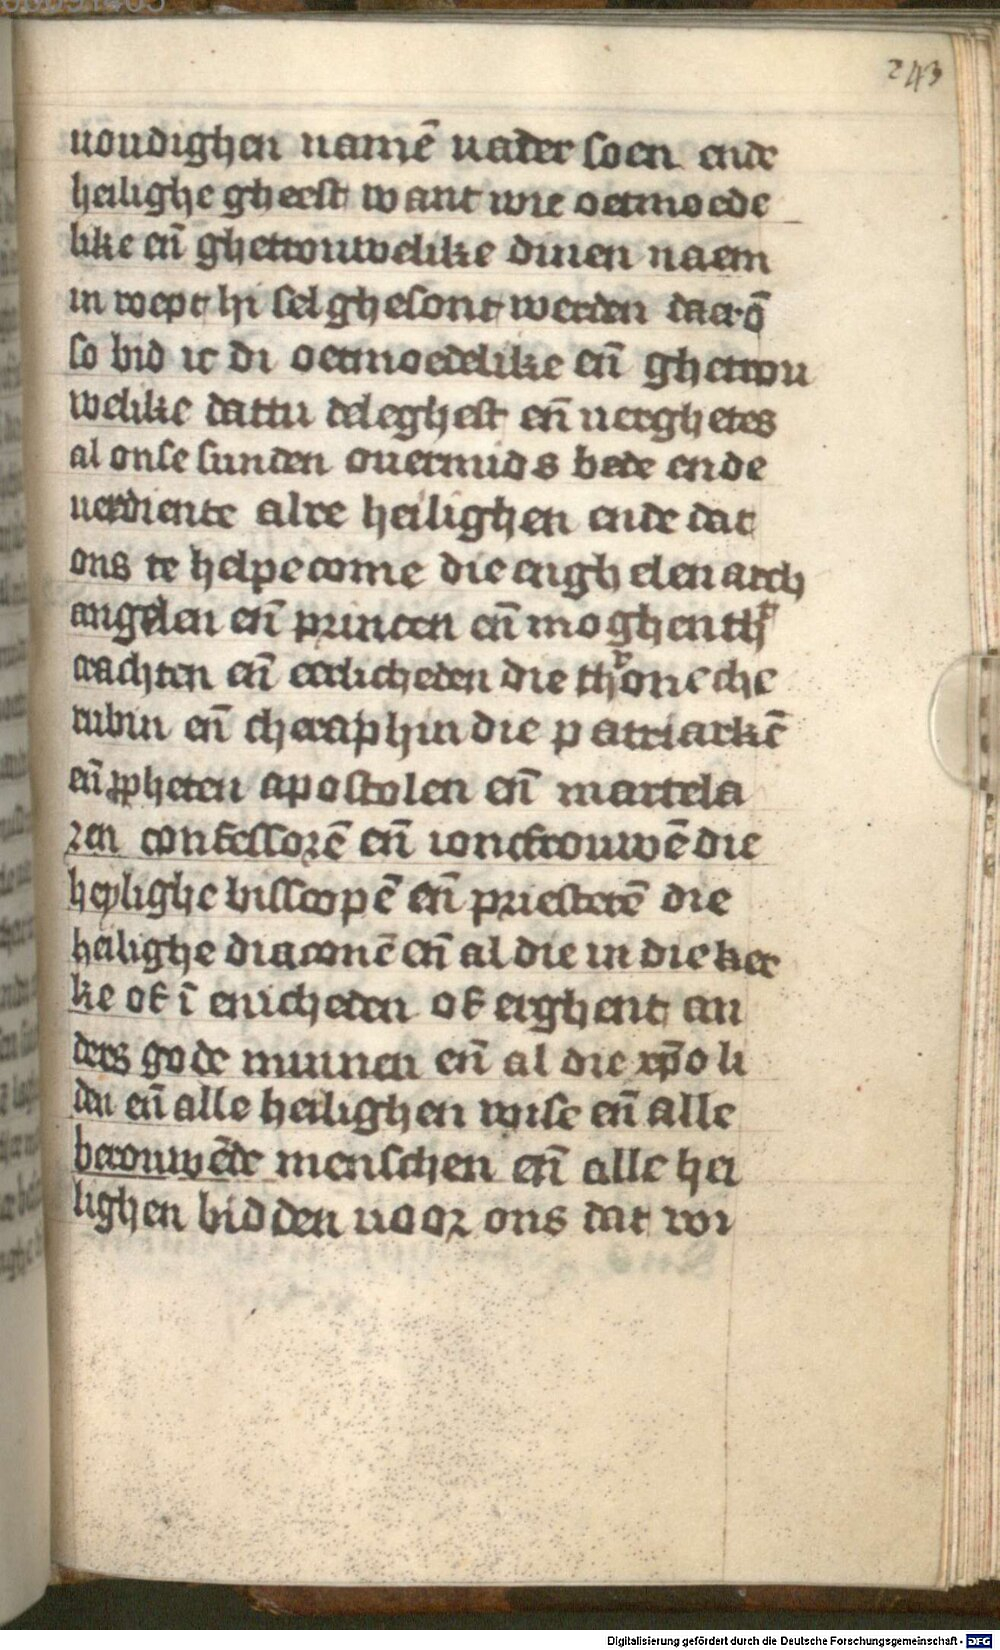 243
uoudighen namē uader soen ende
heilighe gheest want wie oetmoede
like en̄ ghetrouwelike dinen naem
in roept hi sel ghesont werden daerō
so bid ic di oetmoedelike en̄ ghetrou
welike dattu deleghest en̄ uerghetes
al onse sunden ouermids bede ende
uerdiente alre heilighen ende dat
ons te helpe come die enghelen arch
angelen en̄ princen en̄ moghenth
crachten en̄ eerlicheden die throne che
rubin en̄ cheraphin die patriarkē
en̄ ꝓpheten apostolen en̄ martela
ren confessorē en̄ ioncfrouwē die
heylighe bisscopē en̄ priesterē die
heilighe diaconē en̄ al die in die ker
ke of ī enicheden of erghent an
ders gode minnen en̄ al die xp̄o li
den en̄ alle heilighen wise en̄ alle
berouwēde menschen en̄ alle hei
lighen bidden uoor ons dat wi
Digitalisierung gefördert durch die Deutsche Forschungsgemeinschaft - DFG